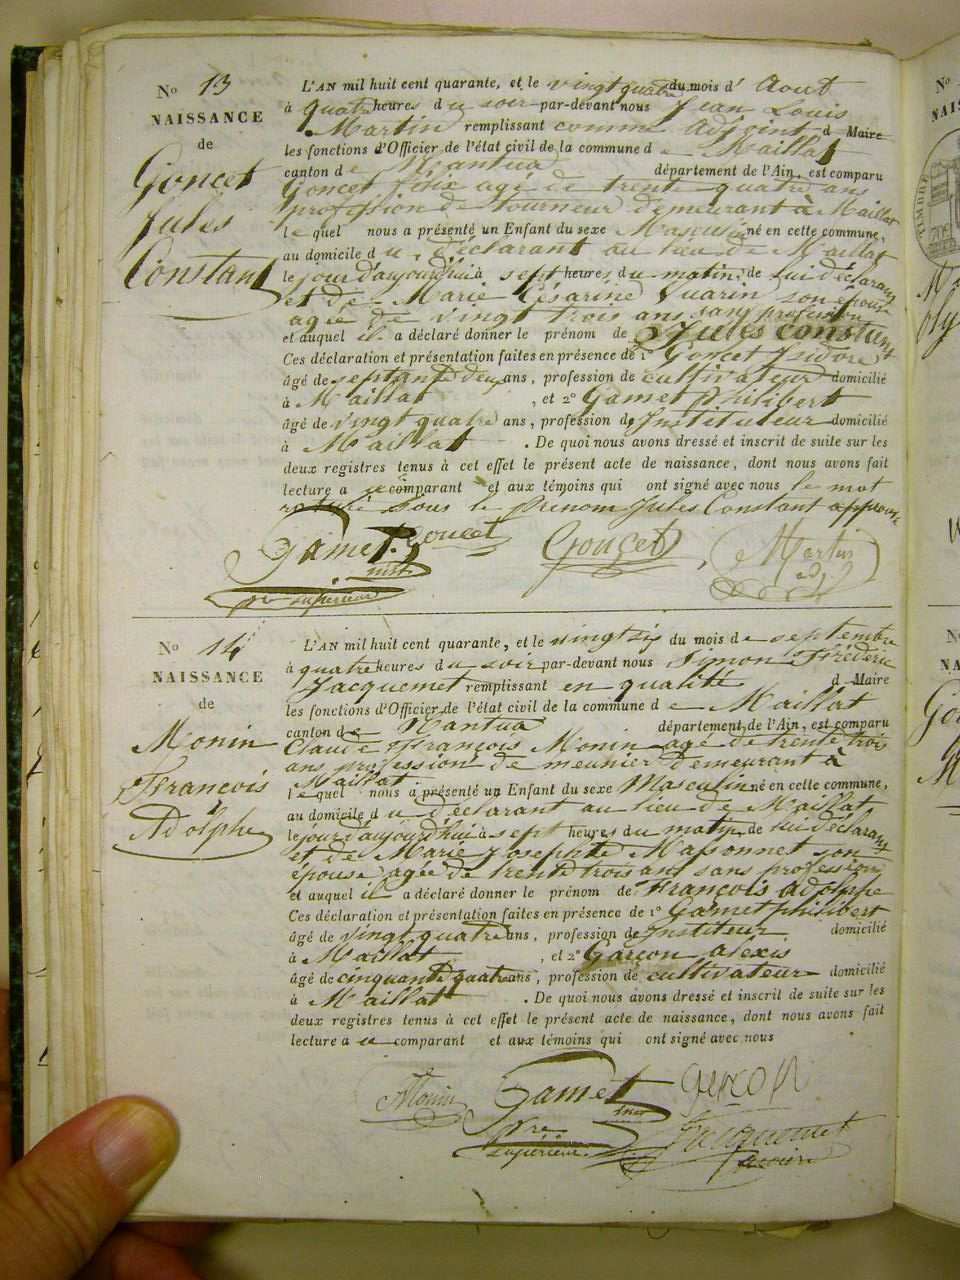 No 13
NAISSANCE
de
Goncet
Jules
Constant
L'AN mil huit cent quarante, et le vingt quatre du mois d' Aout
à quatre heures du soir par-devant nous Jean Louis
Martin remplissant comme Adjoint d Maire
les fonctions d'Officier de l'état civil de la commune de Maillat
canton de Nantua département de l'Ain, est comparu
Goncet félix agé de trente quatre ans
profession de tourneur demeurant à Maillat
lequel nous a présenté un Enfant du sexe Masculin né en cette commune,
au domicile du déclarant au lieu de Maillat
le jour d'aujourd'hui à sept heures du matin, de lui déclarant
et de Marie Césarine Vuarin son épouse
agée de vingt trois ans sans profession
et auquel il a déclaré donner le prénom de Jules Constant
Ces déclaration et présentation faites en présence de 1o Goncet Isidore
âgé de septante deux ans, profession de cultivateur domicilié
à Maillat, et 2o Gamet philibert
âgé de vingt quatre ans, profession de Instituteur domicilié
à Maillat. De quoi nous avons dressé et inscrit de suite sur les
deux registres tenus à cet effet le présent acte de naissance, dont nous avons fait
lecture au comparant et aux témoins qui ont signé avec nous le mot
raturé sous le Prenom Jules Constant approuvé
Gamet Goncet Goncet Martin
inst. adj
supérieur
No 14
NAISSANCE
de
Monin
François
Adolphe
L'AN mil huit cent quarante, et le vingt six du mois de septembre
à quatre heures du soir par-devant nous Simon Fréderic
Jacquemet remplissant en qualité d Maire
les fonctions d'Officier de l'état civil de la commune de Maillat
canton de Nantua département de l'Ain, est comparu
Claude François Monin agé de trente trois
ans profession de meunier demeurant à
Maillat
lequel nous a présenté un Enfant du sexe Masculin né en cette commune,
au domicile du déclarant au lieu de Maillat
le jour d'aujourd'hui à sept heures du matin, de lui déclarant
et de Marie Josephte Massonnet son
épouse agée de trente trois ans sans profession
et auquel il a déclaré donner le prénom de François Adolphe
Ces déclaration et présentation faites en présence de 1o Gamet philibert
âgé de vingt quatre ans, profession de Instituteur domicilié
à Maillat, et 2o Garçon alexis
âgé de cinquante quatre ans, profession de cultivateur domicilié
à Maillat. De quoi nous avons dressé et inscrit de suite sur les
deux registres tenus à cet effet le présent acte de naissance, dont nous avons fait
lecture au comparant et aux témoins qui ont signé avec nous
Monin Gamet
inst
supérieur Jacquemet
maire